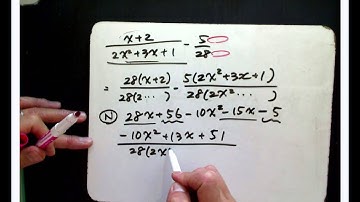 x+2/2x²+3x+1 - 5/28
= 28(x+2)/28(2··· ) - 5(2x²+3x+1)/28(2x²··· )
Ⓝ 28x+56-10x²-15x-5
-10x²+13x+51/28(2x